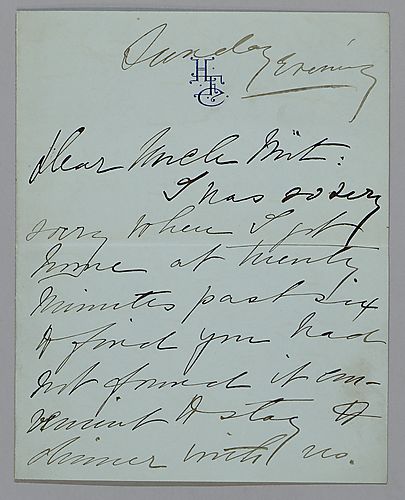 Sunday Evening
Dear Uncle Mit:
I was so very
sorry when I got
home at twenty
minutes past six
to find you had
not found it con-
venient to stay to
dinner with us.